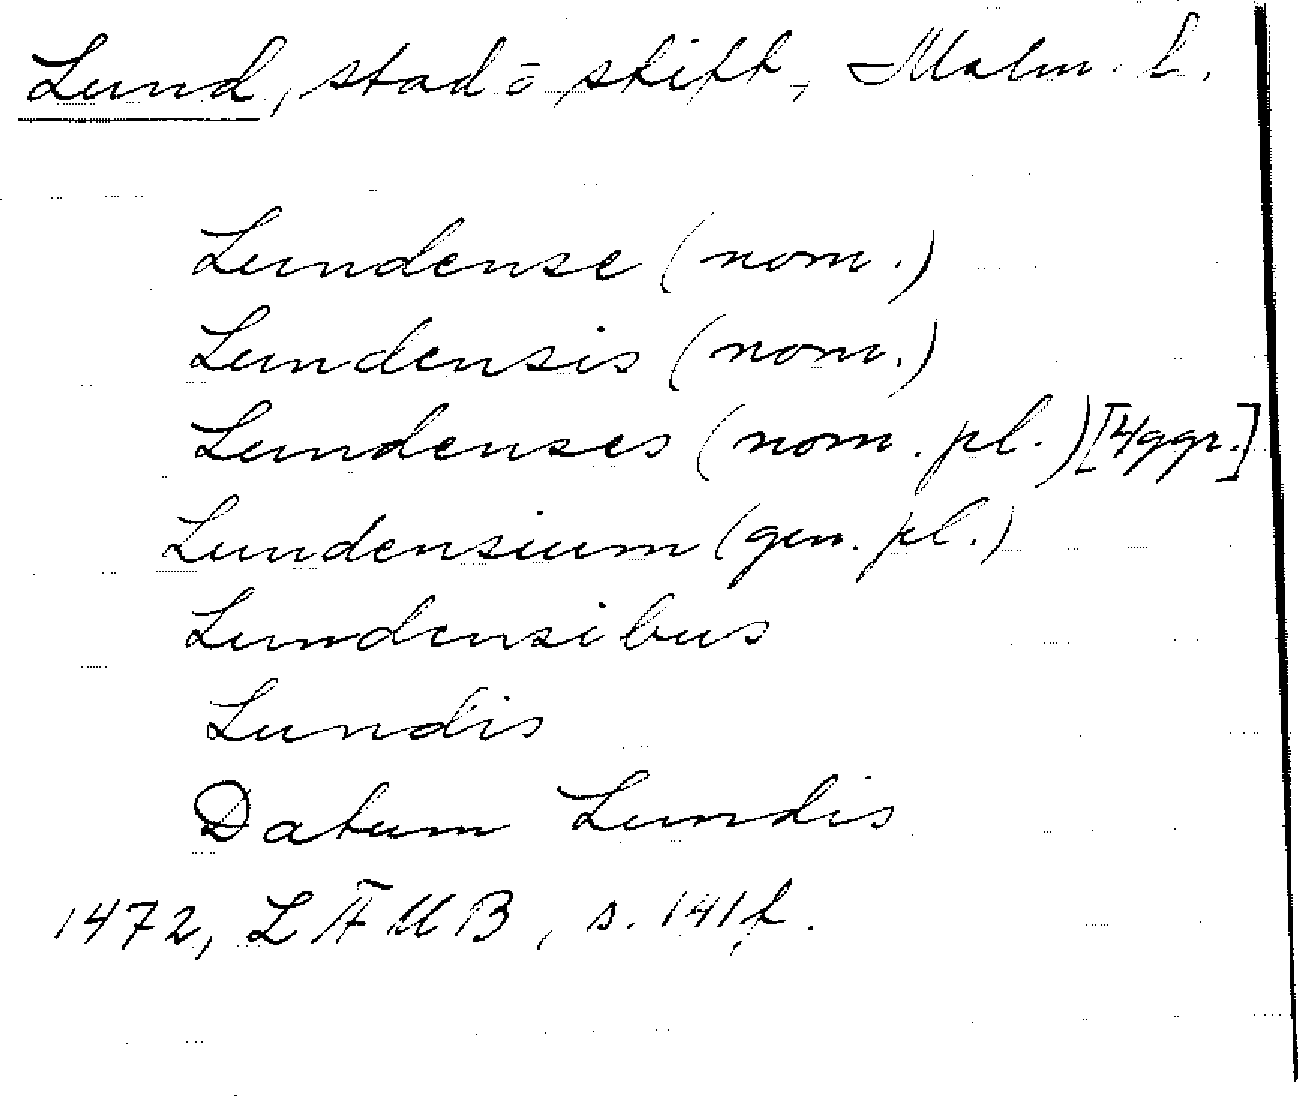 Lund, stad o skift, Malm. L.
Lundense (nom.)
Lundensis (nom.)
Lundenses (nom. pl.) [4 ggr.]
Lundensium (gen. pl.)
Lundensibus
Lundis
Datum Lundis
1472, LÄUB, s. 141f.